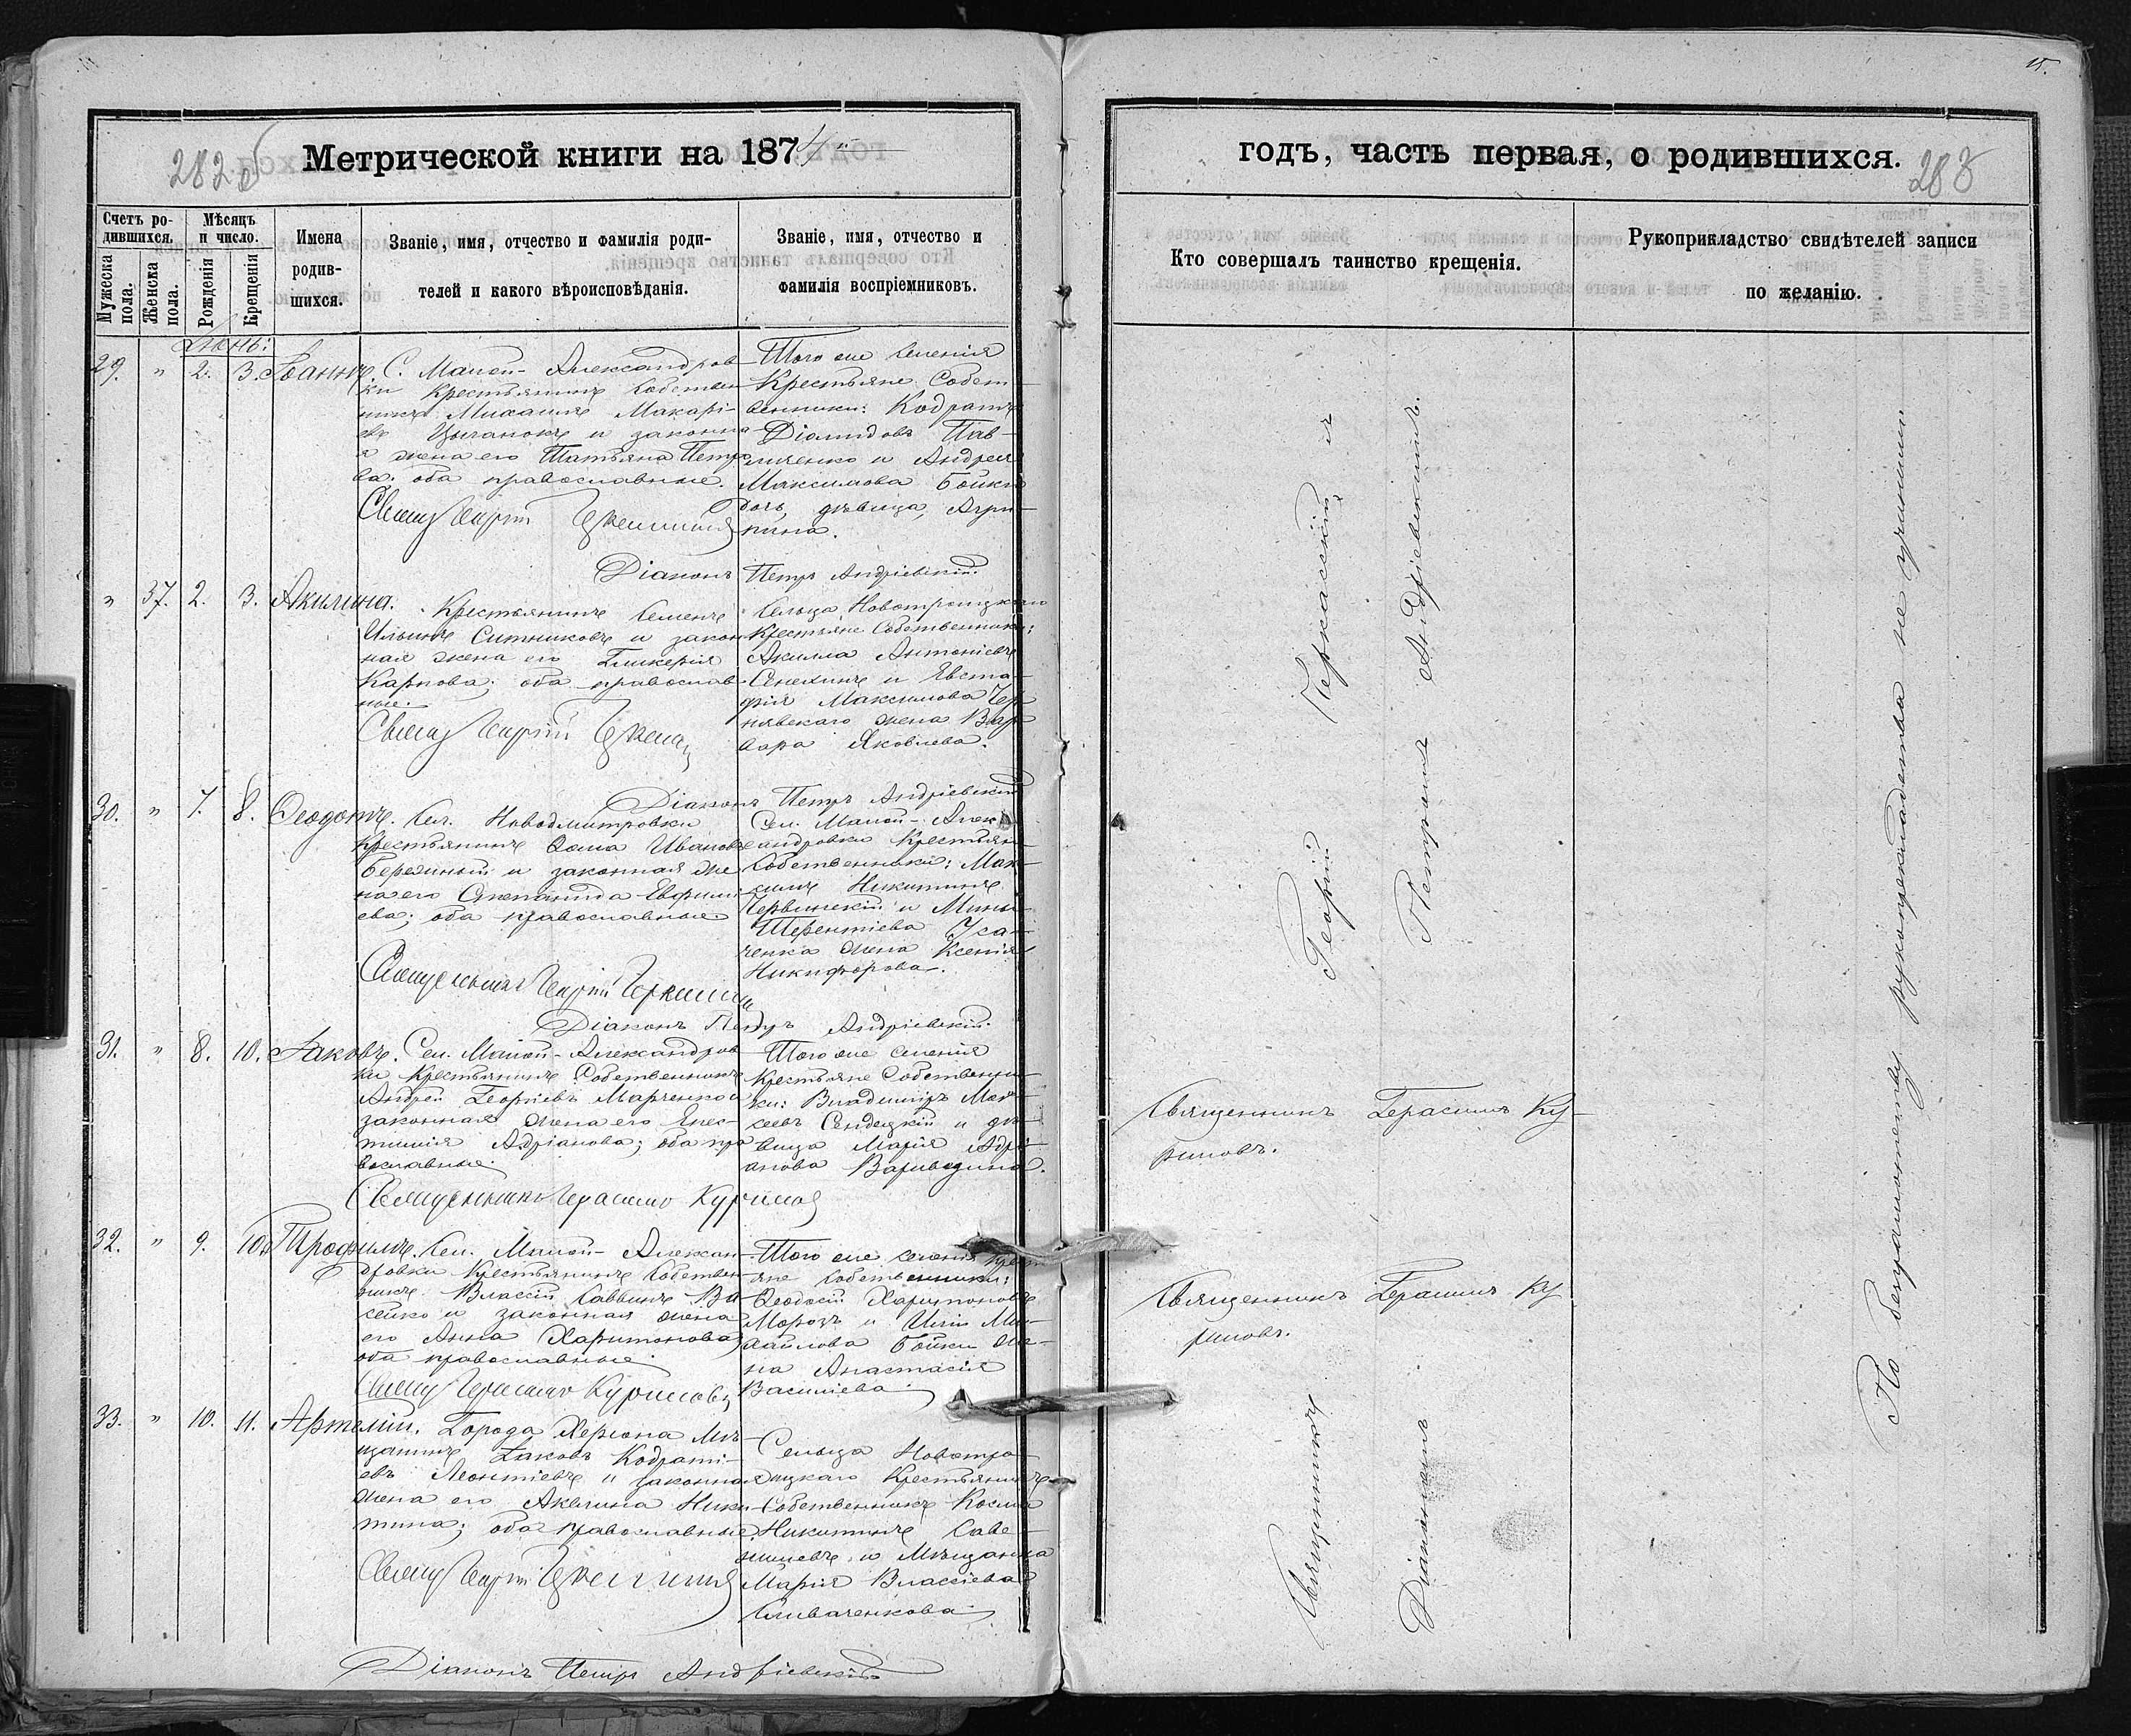 282 об
Метрической книги на 1874
Счетъ ро-
дившихся.
Мужеска
пола.
Женска
пола.
Мѣсяцъ
и число.
Рожденія
Крещенія
Имена
родив-
шихся.
Званіе, имя, отчество и фамилія роди-
телей и какого вѣроисповѣданія.
Званіе, имя, отчество и
фамилія воспріемниковъ.
Іюнь:
29. " 2. 3. Іоаннъ
С. Малой-Александров-
ки Крестьянинъ Собствен-
никъ Михаилъ Макарі-
евъ Цыганокъ и законна-
я жена его Татьяна Петро-
ва; оба православные.
Того же Селенія
Крестьяне Собст-
венники: Кодратъ
Діомидовъ Пав-
личенко и Андрея
Максимова Бойки
дочь, дѣвица, Агри-
пина.
Діаконъ Петръ Андріевскій
" 37. 2. 3. Акилина.
Крестьянинъ Семенъ
Ильинъ Ситниковъ и закон-
ная жена его Гликерія
Карпова; оба православ-
ные.
Сельца Новотроицкаго
Крестьяне Собственники:
Акилла Антоніевъ
и Евста-
фія Максимова Чер-
нявскаго жена Вар-
вара Яковлева.
Діаконъ Петръ Андріевскій
30. " 7. 8. Ѳеодотъ.
Сел. Новодмитровки
Крестьянинъ Ѳома Ивановъ
Бережный и законная же-
на его Степанида Евфимі-
ева; оба православные
Сел. Малой-Алек-
сандровки Крестьяне
Собственники: Мак-
симъ Никитинъ
Червинскій и Мины
Терентіева Уса-
ченка жена Ксенія
Никифорова.
Діаконъ Петръ Андріевскій
31. " 8. 10. Іаковъ.
Сел. Малой-Александров-
ки Крестьянинъ Собственникъ
Андрей Георгіевъ Марченко и
законная жена его Елес-
тинія Адріанова; оба пра-
вославные.
Того же селенія
Крестьяне Собственни-
ки: Владиміръ Мои-
сеевъ Сендецкій и дѣ-
вица Марія Адрі-
анова Вариводина.
Священникъ Герасимъ Куриловъ
32. " 9. 10. Трофимъ.
Сел. Малой-Алексан-
дровки Крестьянинъ Собствен-
никъ Власій Саввинъ Ва-
сейко и законная жена
его Анна Харитонова;
оба православные
Того же селенія Крест-
яне Собственники:
Ѳеодосій Харитоновъ
Морозъ и Иліи Ми-
хайлова Бойки же-
на Анастасія
Василіева
Свящ Герасимъ Куриловъ
33. " 10. 11. Артемій.
Города Херсона Мѣ-
щанинъ Іаковъ Кодраті-
евъ Леонтіевъ и законная
жена его Акилина Ники-
тина; оба православные.
Сельца Новотро-
ицкаго Крестьянинъ
Собственникъ Косма
Никитинъ Саве-
и Мѣщанка
Марія Власіева
Сливаченкова
Діаконъ Петръ Андріевскій
15.
годъ, часть первая, о родившихся.
283
Кто совершалъ таинство крещенія.
Рукоприкладство свидѣтелей записи
по желанію.
Священникъ Георгій Черкасскій и
Діакономъ Петромъ Андріевскимъ.
Священникъ Герасимъ Ку-
риловъ.
Священникъ Герасимъ Ку-
риловъ.
По безграмотству рукоприкладства не учинили